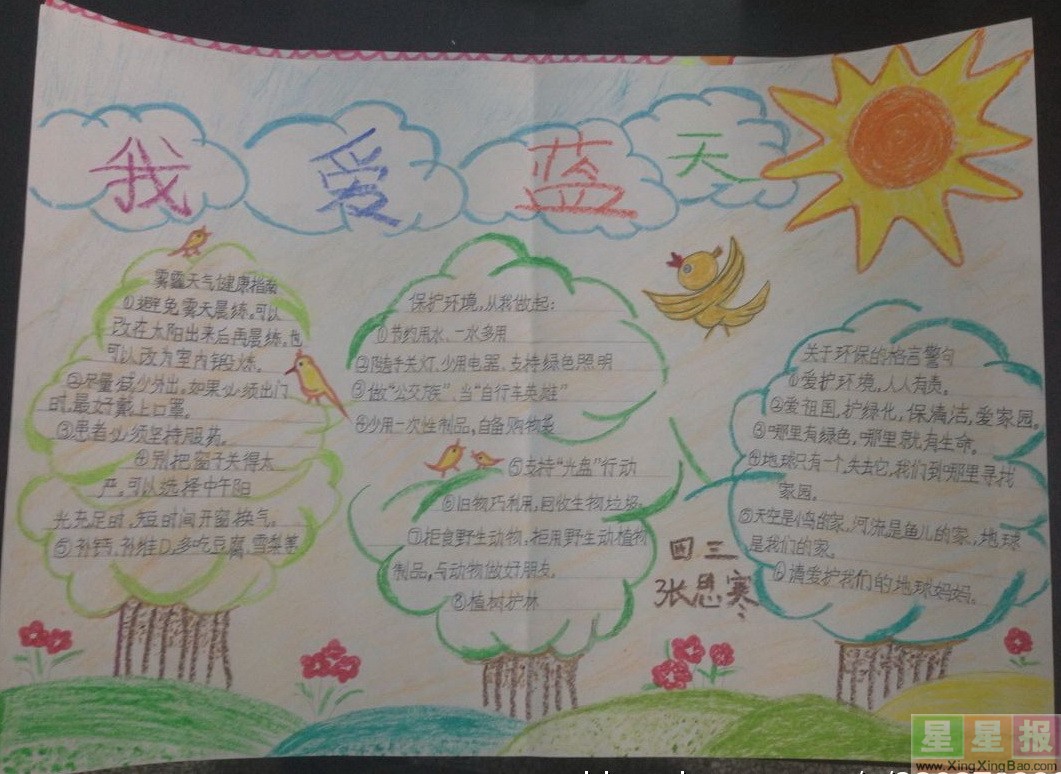 我爱蓝天
雾霾天气健康指南
①避免雾天晨练。可以
改在太阳出来后再晨练。也
可以改为室内锻炼。
②尽量减少外出。如果必须出门
时，最好戴上口罩。
③患者必须坚持服药。
④别把窗子关得太
严。可以选择中午阳
光充足时，短时间开窗换气。
⑤补钙、补维D，多吃豆腐、雪梨等
保护环境，从我做起：
①节约用水、一水多用
②随手关灯、少用电器、支持绿色照明
③做“公交族”、当“自行车英雄”
④少用一次性制品，自备购物袋
⑤支持“光盘”行动
⑥旧物巧利用，回收生物垃圾
⑦拒食野生动物，拒用野生动植物
制品，与动物做好朋友
⑧植树护林
四三
张思寒
关于环保的格言警句
①爱护环境，人人有责。
②爱祖国，护绿化，保清洁，爱家园。
③哪里有绿色，哪里就有生命。
④地球只有一个，失去它，我们到哪里寻找
家园。
⑤天空是小鸟的家，河流是鱼儿的家，地球
是我们的家。
⑥请爱护我们的地球妈妈。
星星报
www.XingXingBao.com